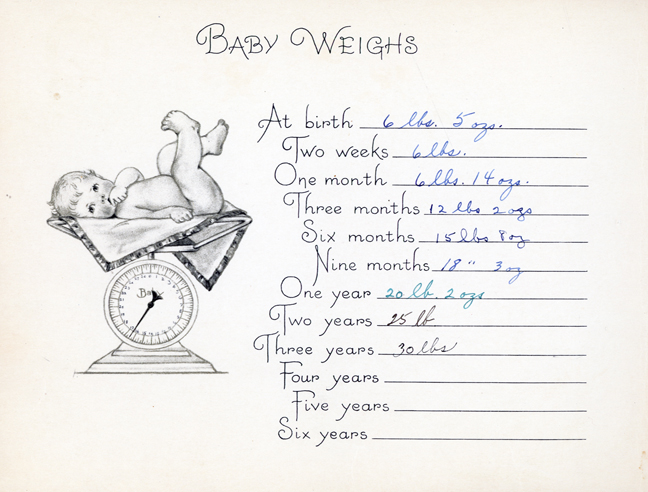 BABY WEIGHS
At birth 6 lbs. 5 ozs.
Two weeks 6 lbs.
One month 6 lbs. 14 ozs.
Three months 12 lbs 2 ozs
Six months 15 lbs 8 oz
Nine months 18 " 3 oz
One year 20 lb. 2 ozs
Two years 25 lb
Three years 30 lbs
Four years
Five years
Six years